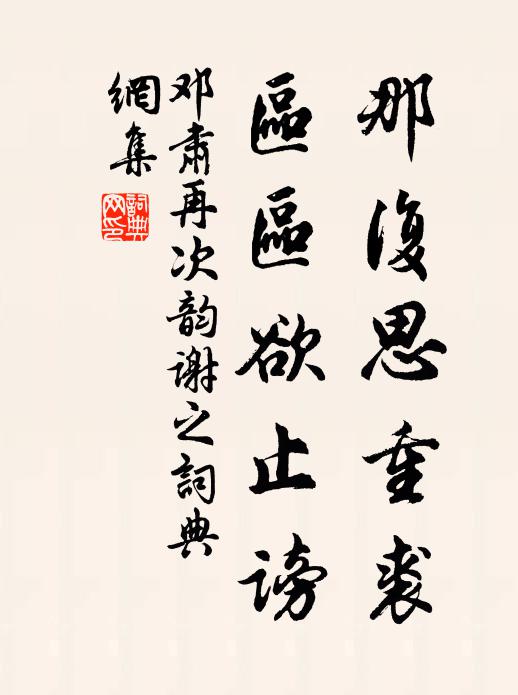 那復思重裘
區區欲止謗
邓肅再次韵謝之詞典
網集
詞典
网印